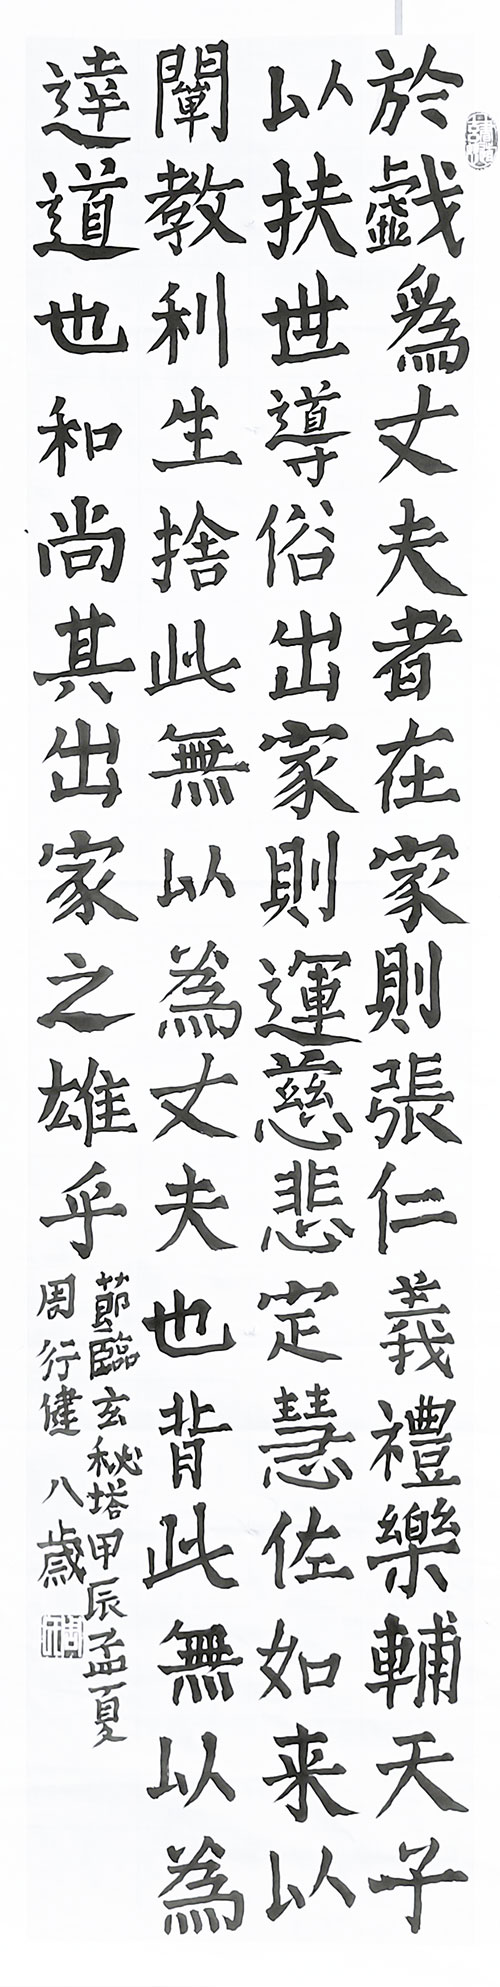 於戱為丈夫者在家則張仁義禮樂輔天子
以扶世導俗出家則運慈悲定慧佐如来以
闡教利生捨此無以為丈夫也背此無以為
達道也和尚其出家之雄乎
節臨玄秘塔甲辰孟夏
周行健八歲